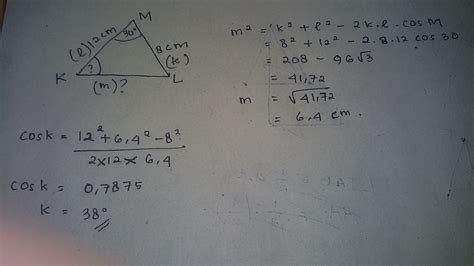 M
(l) 12 cm
30°
8 cm
(k)
K
?
L
(m)?
m² = k² + l² - 2k.l.cos M
= 8² + 12² - 2.8.12 cos 30
= 208 - 96√3
= 41,72
m = √41,72
= 6,4 cm.
cos k = 12² + 6,4² - 8²
2×12×6,4
cos k = 0,7875
k = 38°